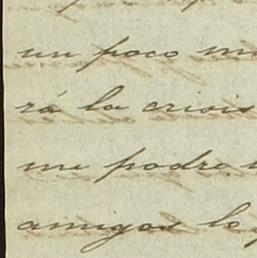 un poco m
rá la crisis
me podre
amigos lo